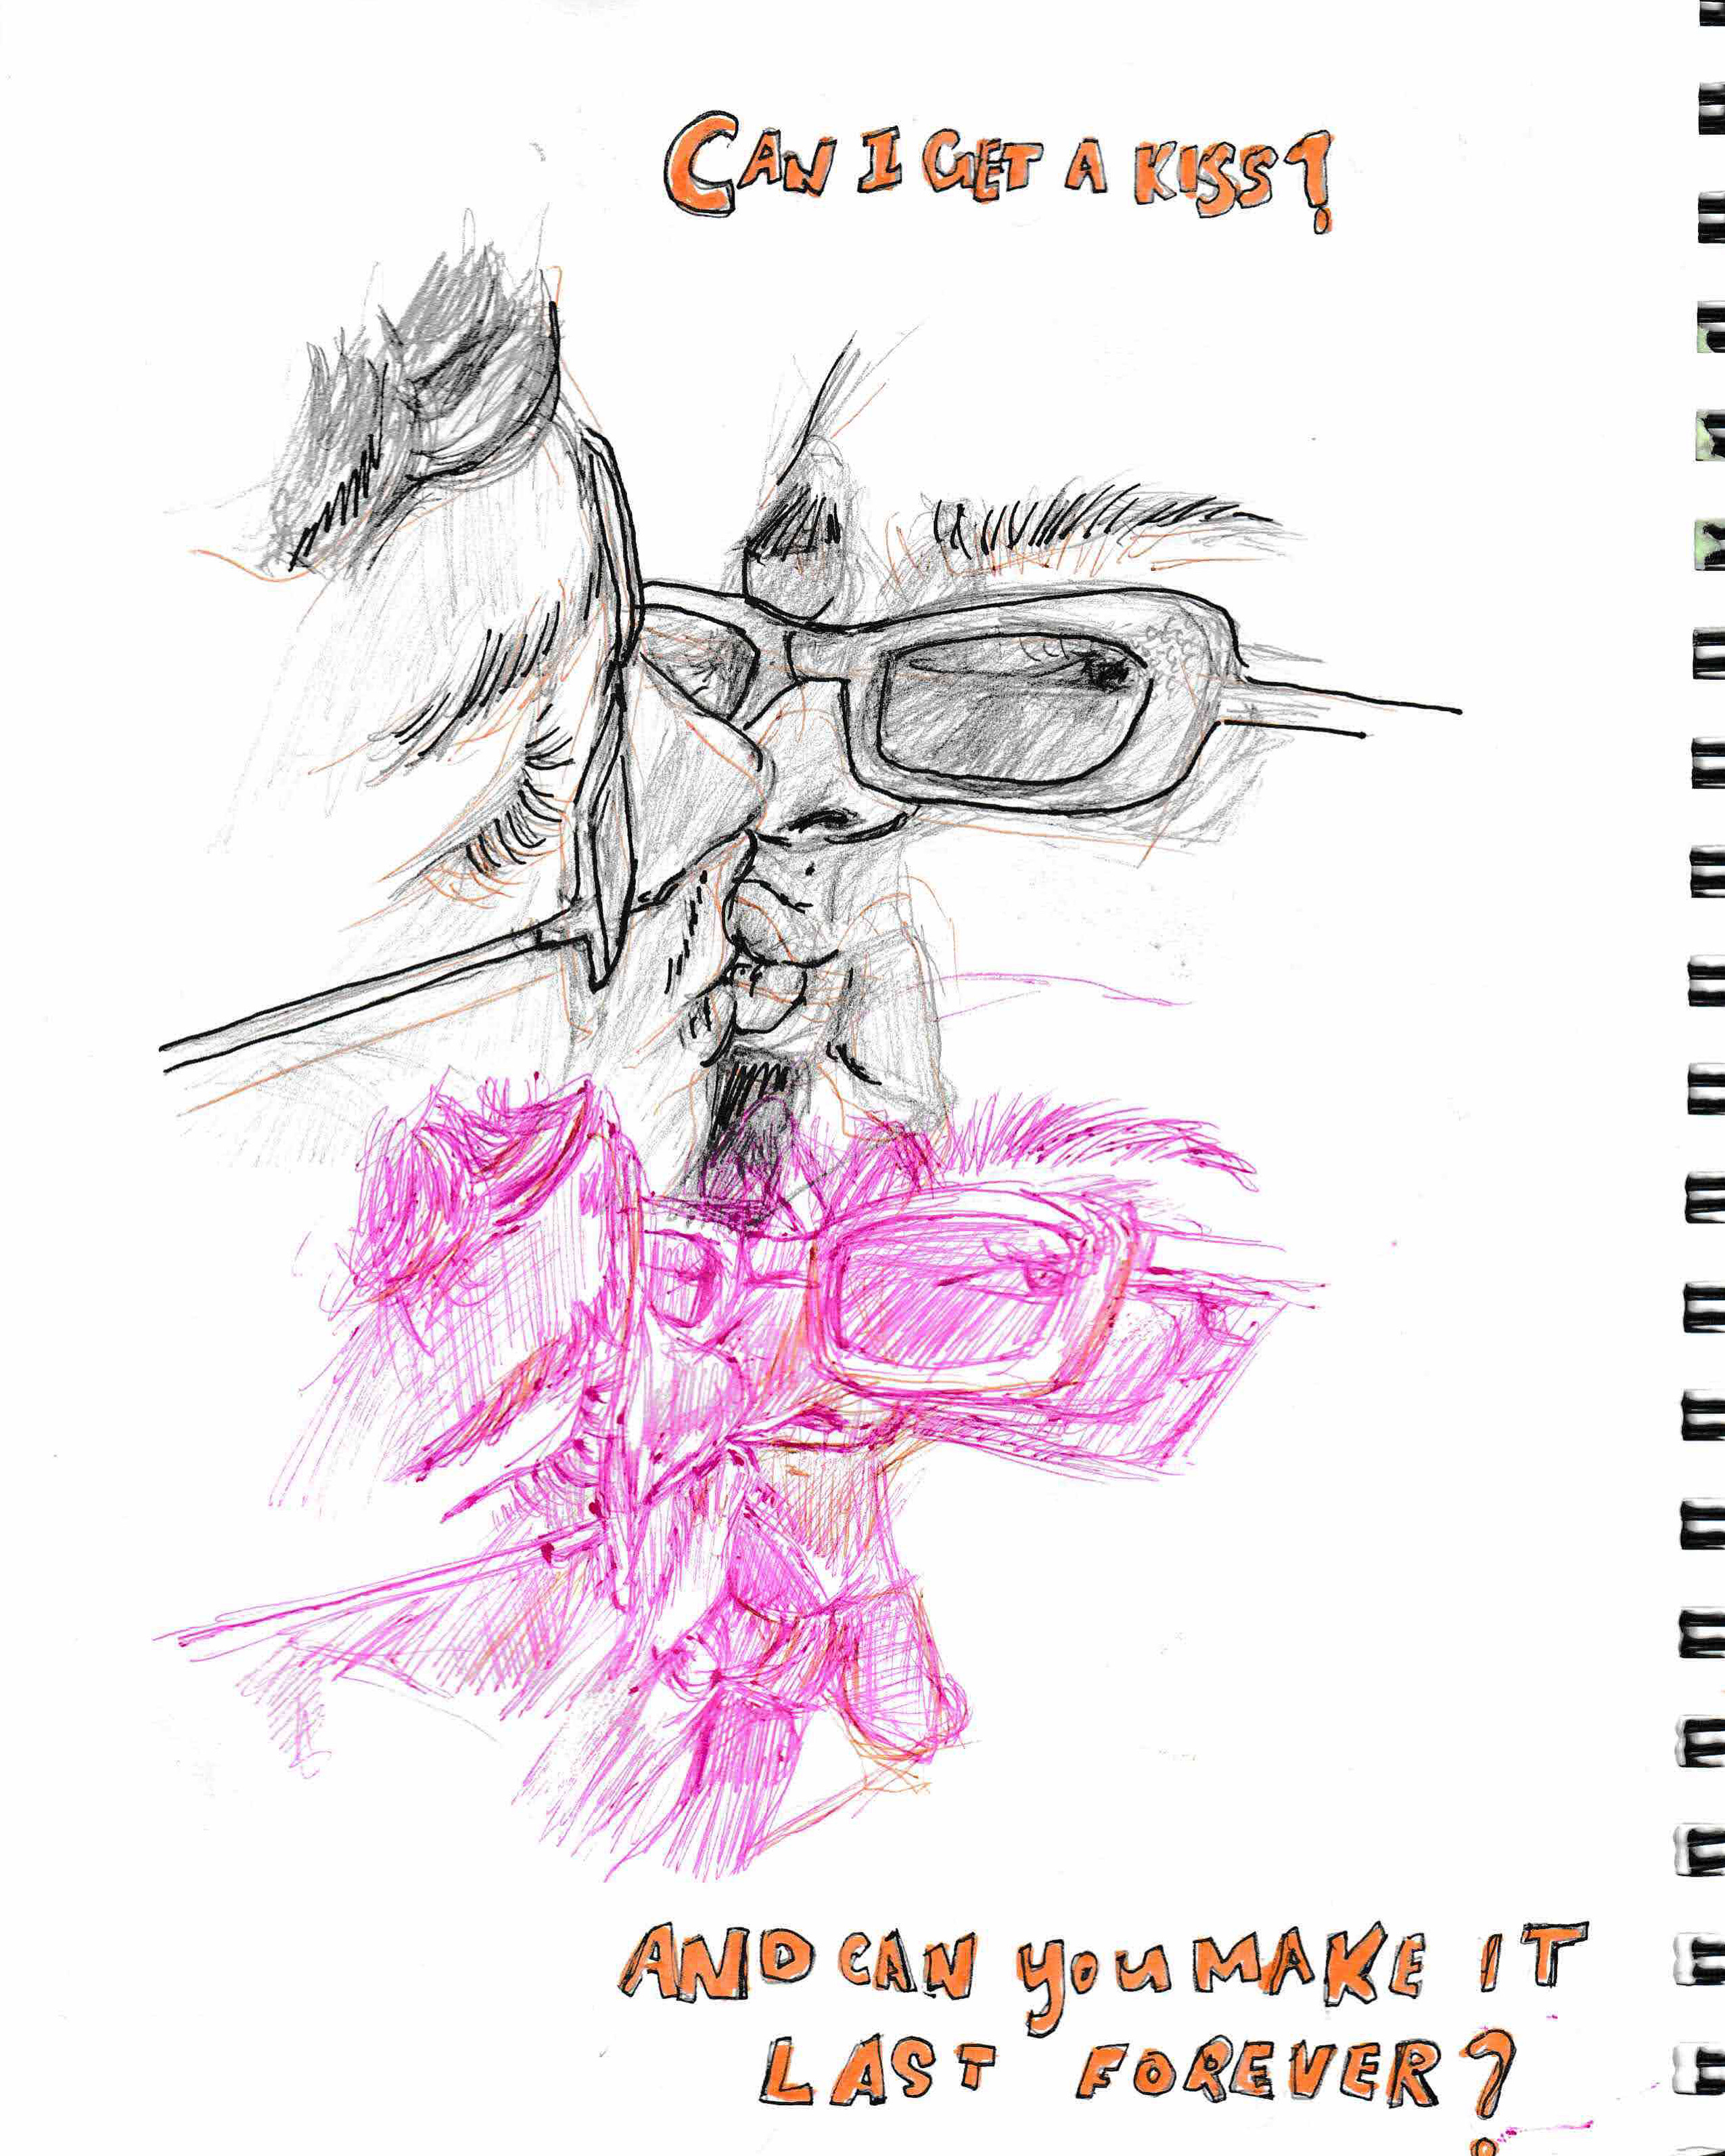 CAN I GET A KISS?
AND CAN you MAKE IT
LAST FOREVER?